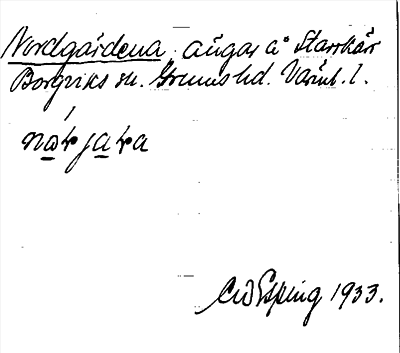 Nordgårdena ängar å Starrkärr
Borgviks sn. Grums hd. Värml. l.
CW Esping 1933.